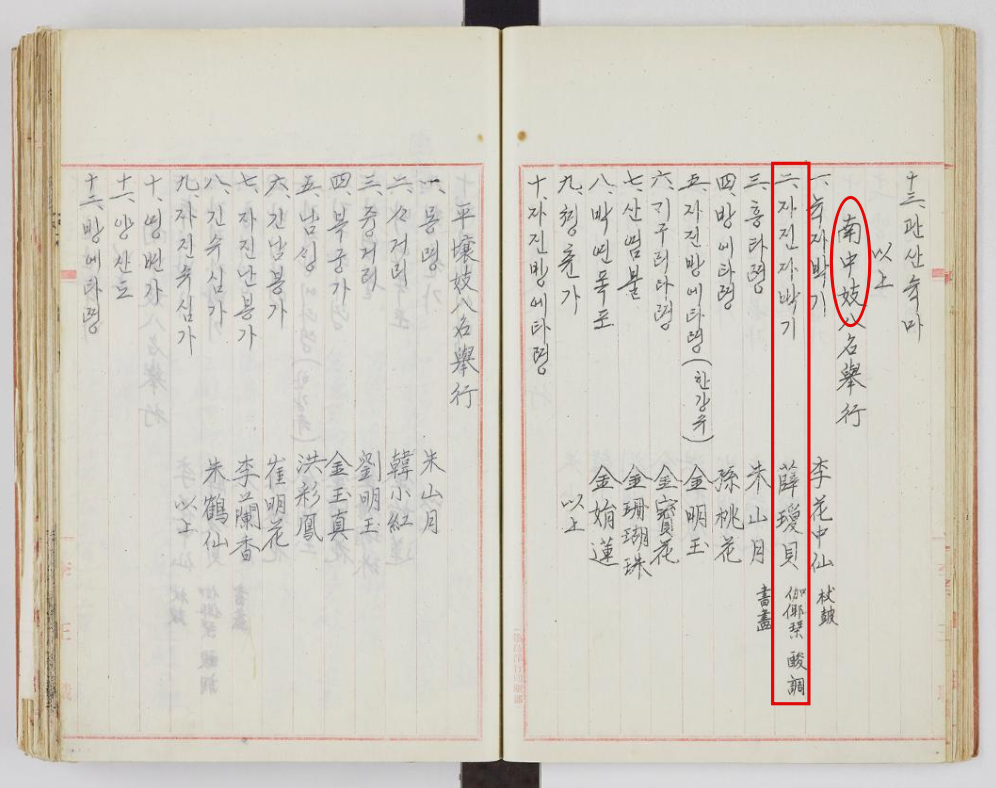 十三、관산융마
以上
南中妓八名擧行
一、육자박기 李花中仙 杖鼓
二、자진자박기 薛瓊貝 伽倻琴 酸調
三、흥타령 朱山月 書畵
四、방에타령 孫桃花
五、자진방에타령(한강슈) 金明玉
六、기구리타령 金寶花
七、산염불 金珊瑚珠
八、박연폭포 金娟蓮
九、청춘가 以上
十、자진방에타령
平壤妓八名擧行
一、 朱山月
二、 韓小紅
三、중거리 劉明玉
四、 金玉真
五、 洪彩鳳
六、긴난봉가 崔明花
七、자진난봉가 李蘭香
八、긴슈심가 朱鶴仙
九、자진슈심가 以上
十、영변가
十一、양산도
十二、방에타령